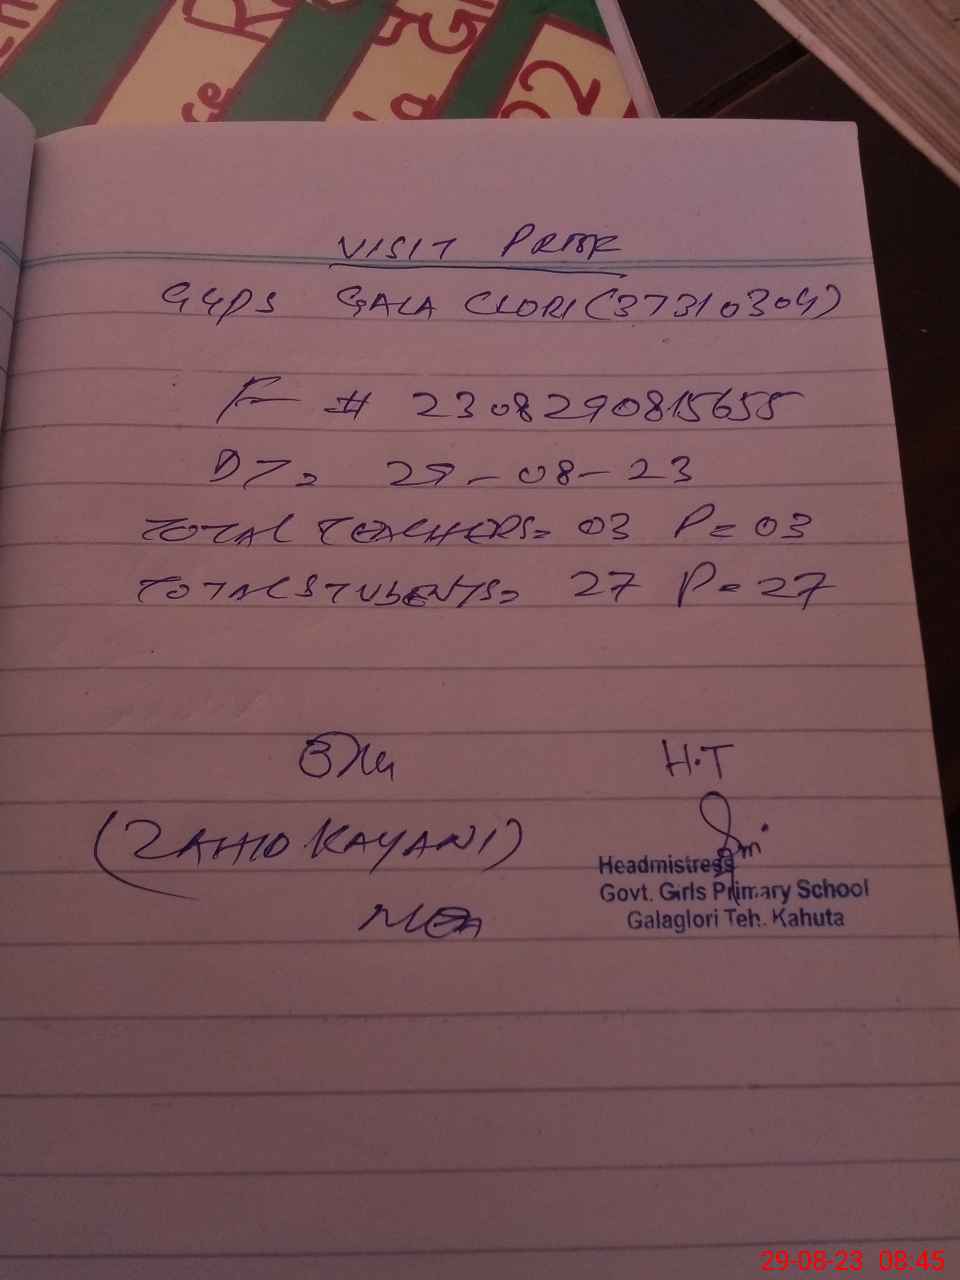 VISIT PROOF
GGPS GALA GLORI (37310304)
F # 2308290815655
DT = 29-08-23
TOTAL TEACHERS = 03 P = 03
TOTAL STUDENTS = 27 P = 27
H.T
(ZAHID KAYANI)
MEA
Headmistress
Govt. Girls Primary School
Galaglori Teh. Kahuta
29-08-23 08:45